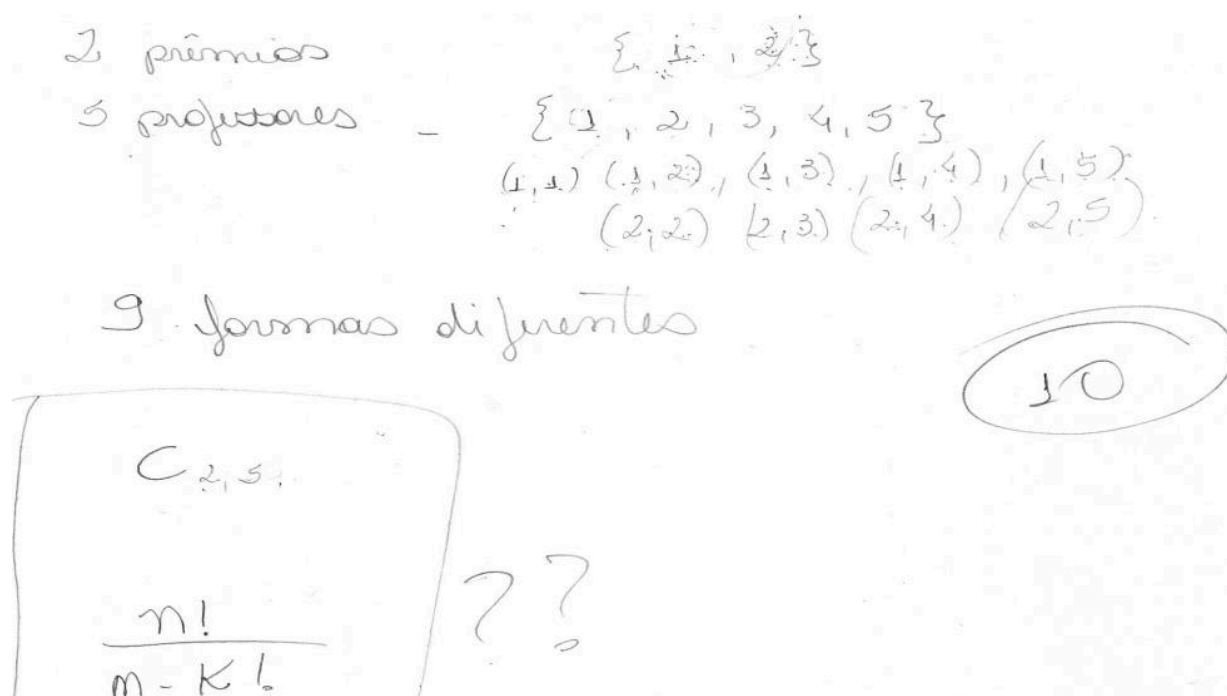 2 prêmios { 1 , 2 }
5 professores - { 1 , 2 , 3 , 4 , 5 }
(1,1) (1,2) , (1,3) , (1,4) , (1,5)
(2,2) (2,3) (2,4) (2,5)
9 formas diferentes
10
C 2,5.
n!
n - K!
??